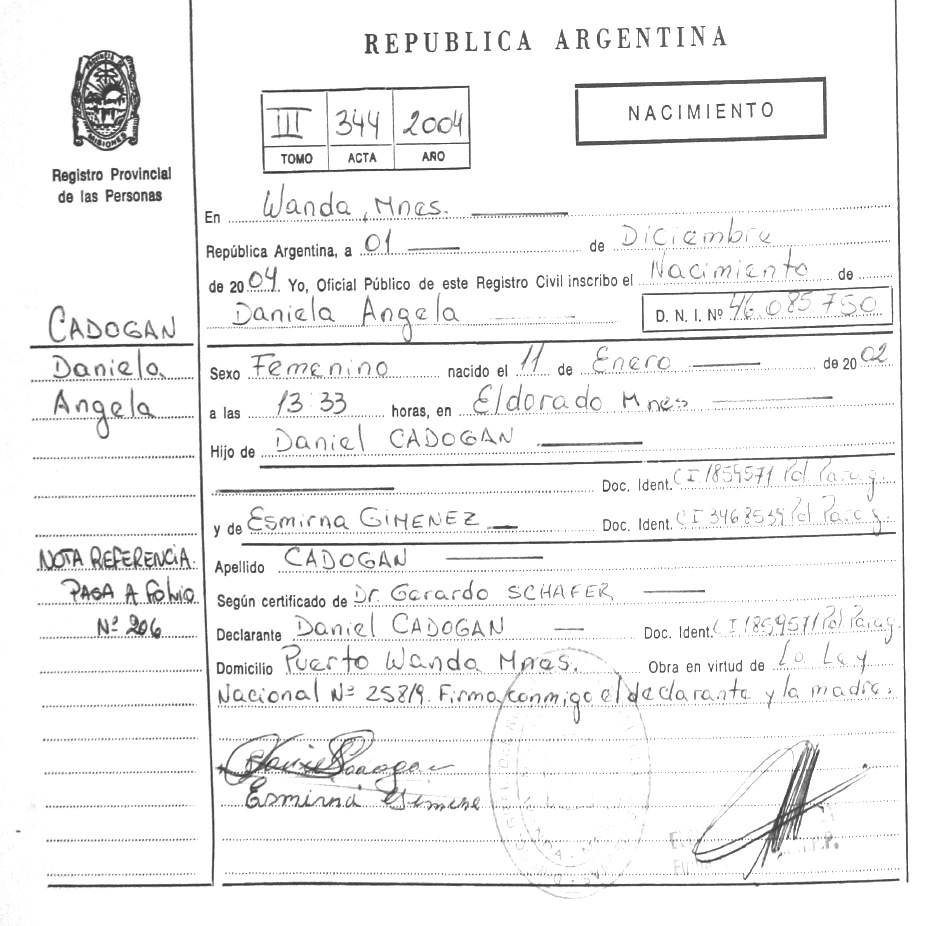 REPUBLICA ARGENTINA
PROVINCIA DE MISIONES
Registro Provincial
de las Personas
III 344 2004
TOMO ACTA AÑO
NACIMIENTO
En Wanda, Mnes.
República Argentina, a 01 de Diciembre
de 2004 Yo, Oficial Público de este Registro Civil inscribo el Nacimiento de
Daniela Angela D. N. I. Nº 46.085.750
CADOGAN
Daniela
Angela
Sexo Femenino nacido el 11 de Enero de 2002
a las 13:33 horas, en Eldorado Mnes
Hijo de Daniel CADOGAN
Doc. Ident. CI 1859571 Pol Parag.
y de Esmirna GIMENEZ Doc. Ident. CI 3468539 Pol Parag.
NOTA REFERENCIA.
PASA A Folio
Nº 206
Apellido CADOGAN
Según certificado de Dr. Gerardo SCHAFER
Declarante Daniel CADOGAN Doc. Ident. CI 1859571 Pol Parag.
Domicilio Puerto Wanda Mnes. Obra en virtud de La Ley
Nacional Nº 25819. Firma conmigo el declarante y la madre.
Esmirna